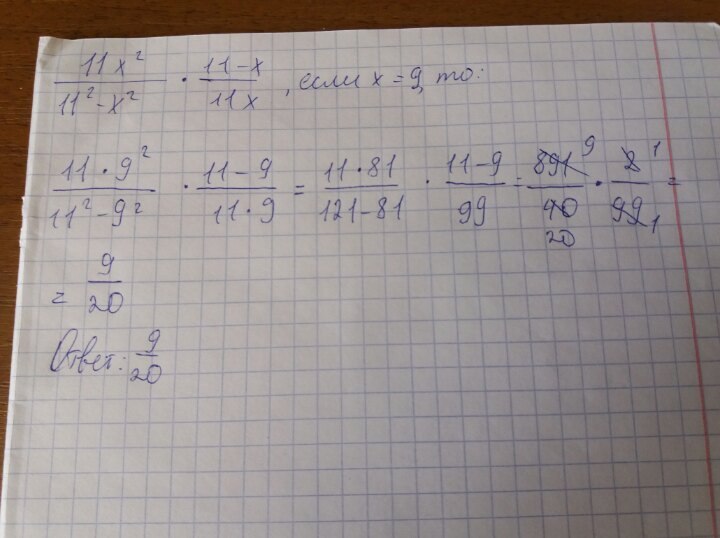 11x²/11²-x² · 11-x/11x, если x=9, то:
11·9²/11²-9² · 11-9/11·9 = 11·81/121-81 · 11-9/99 = 891 9/40 20 · 2 1/99 1 =
= 9/20
Ответ: 9/20